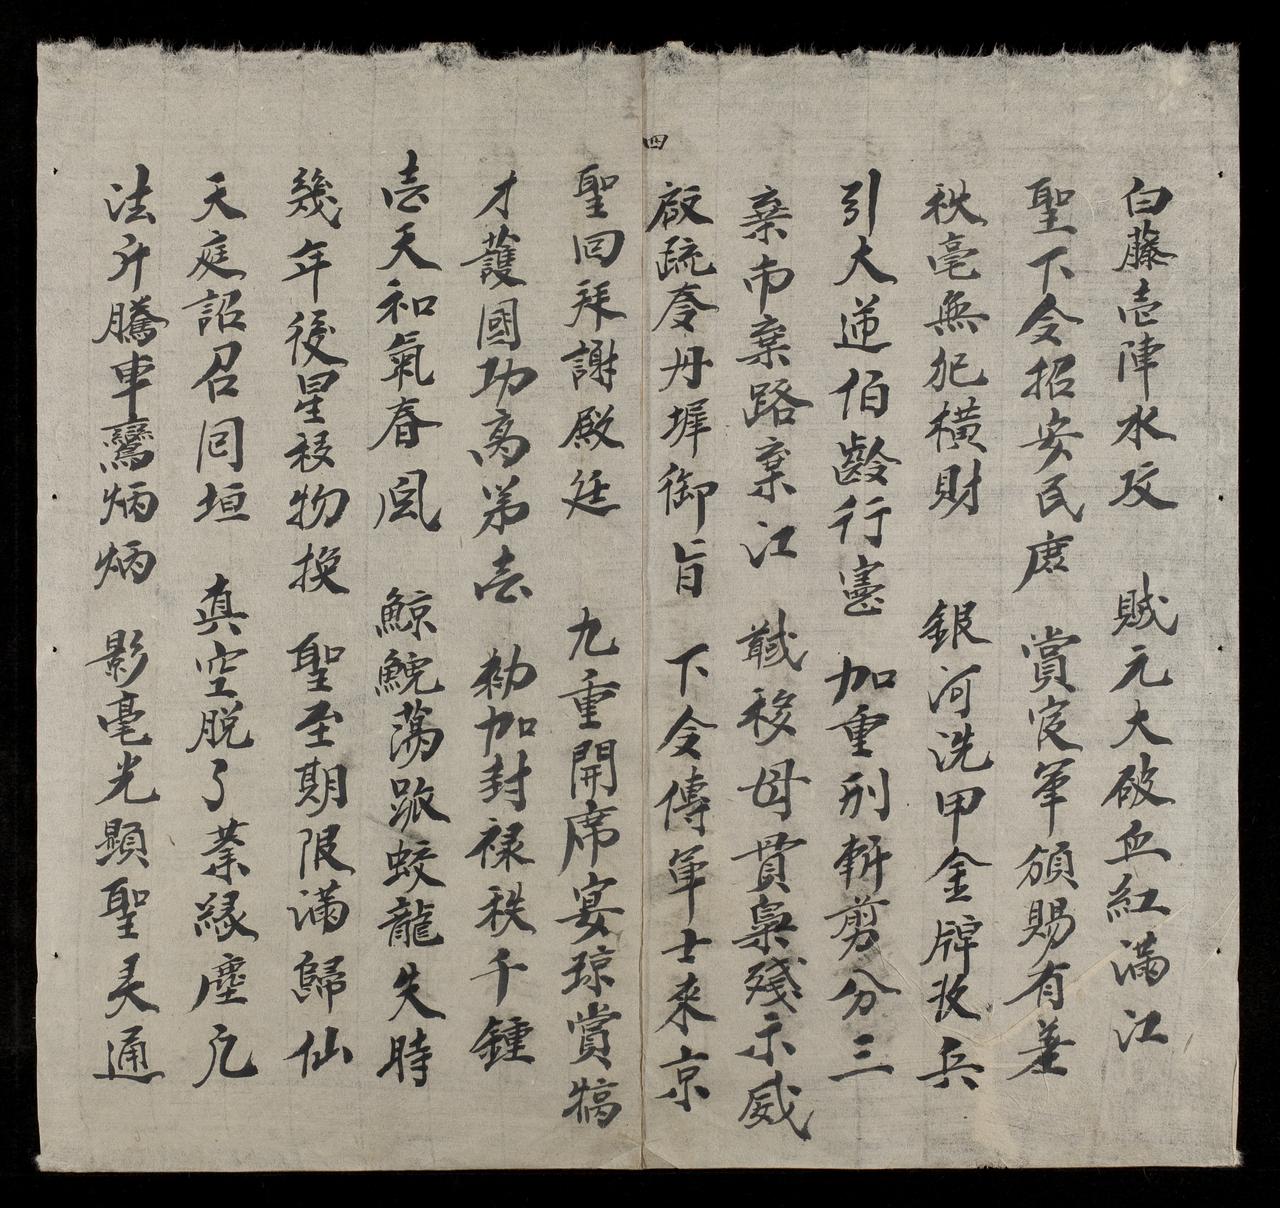 白藤壱陣水攻 賊元大破血紅滿江
聖下令招安民庶 賞定軍頒賜有差
秋毫無犯横財 銀河洗甲金牌收兵
引大逆伯齡行憲 加重刑斬剪分三
棄市棄路棄江 職移母貫梟殘示威
啟疏奏丹墀御旨 下令傳軍士來京
四
聖回拜謝殿廷 九重開席宴瓊賞犒
才護國功高弟壱 勑加封禄秩千鍾
壱天和氣春風 鯨鯢蕩跡蛟龍失時
幾年後星移物換 聖至期限滿歸仙
天庭詔召回垣 真空脱了業緣塵凡
法升騰車鸞炳炳 影毫光顯聖灵通